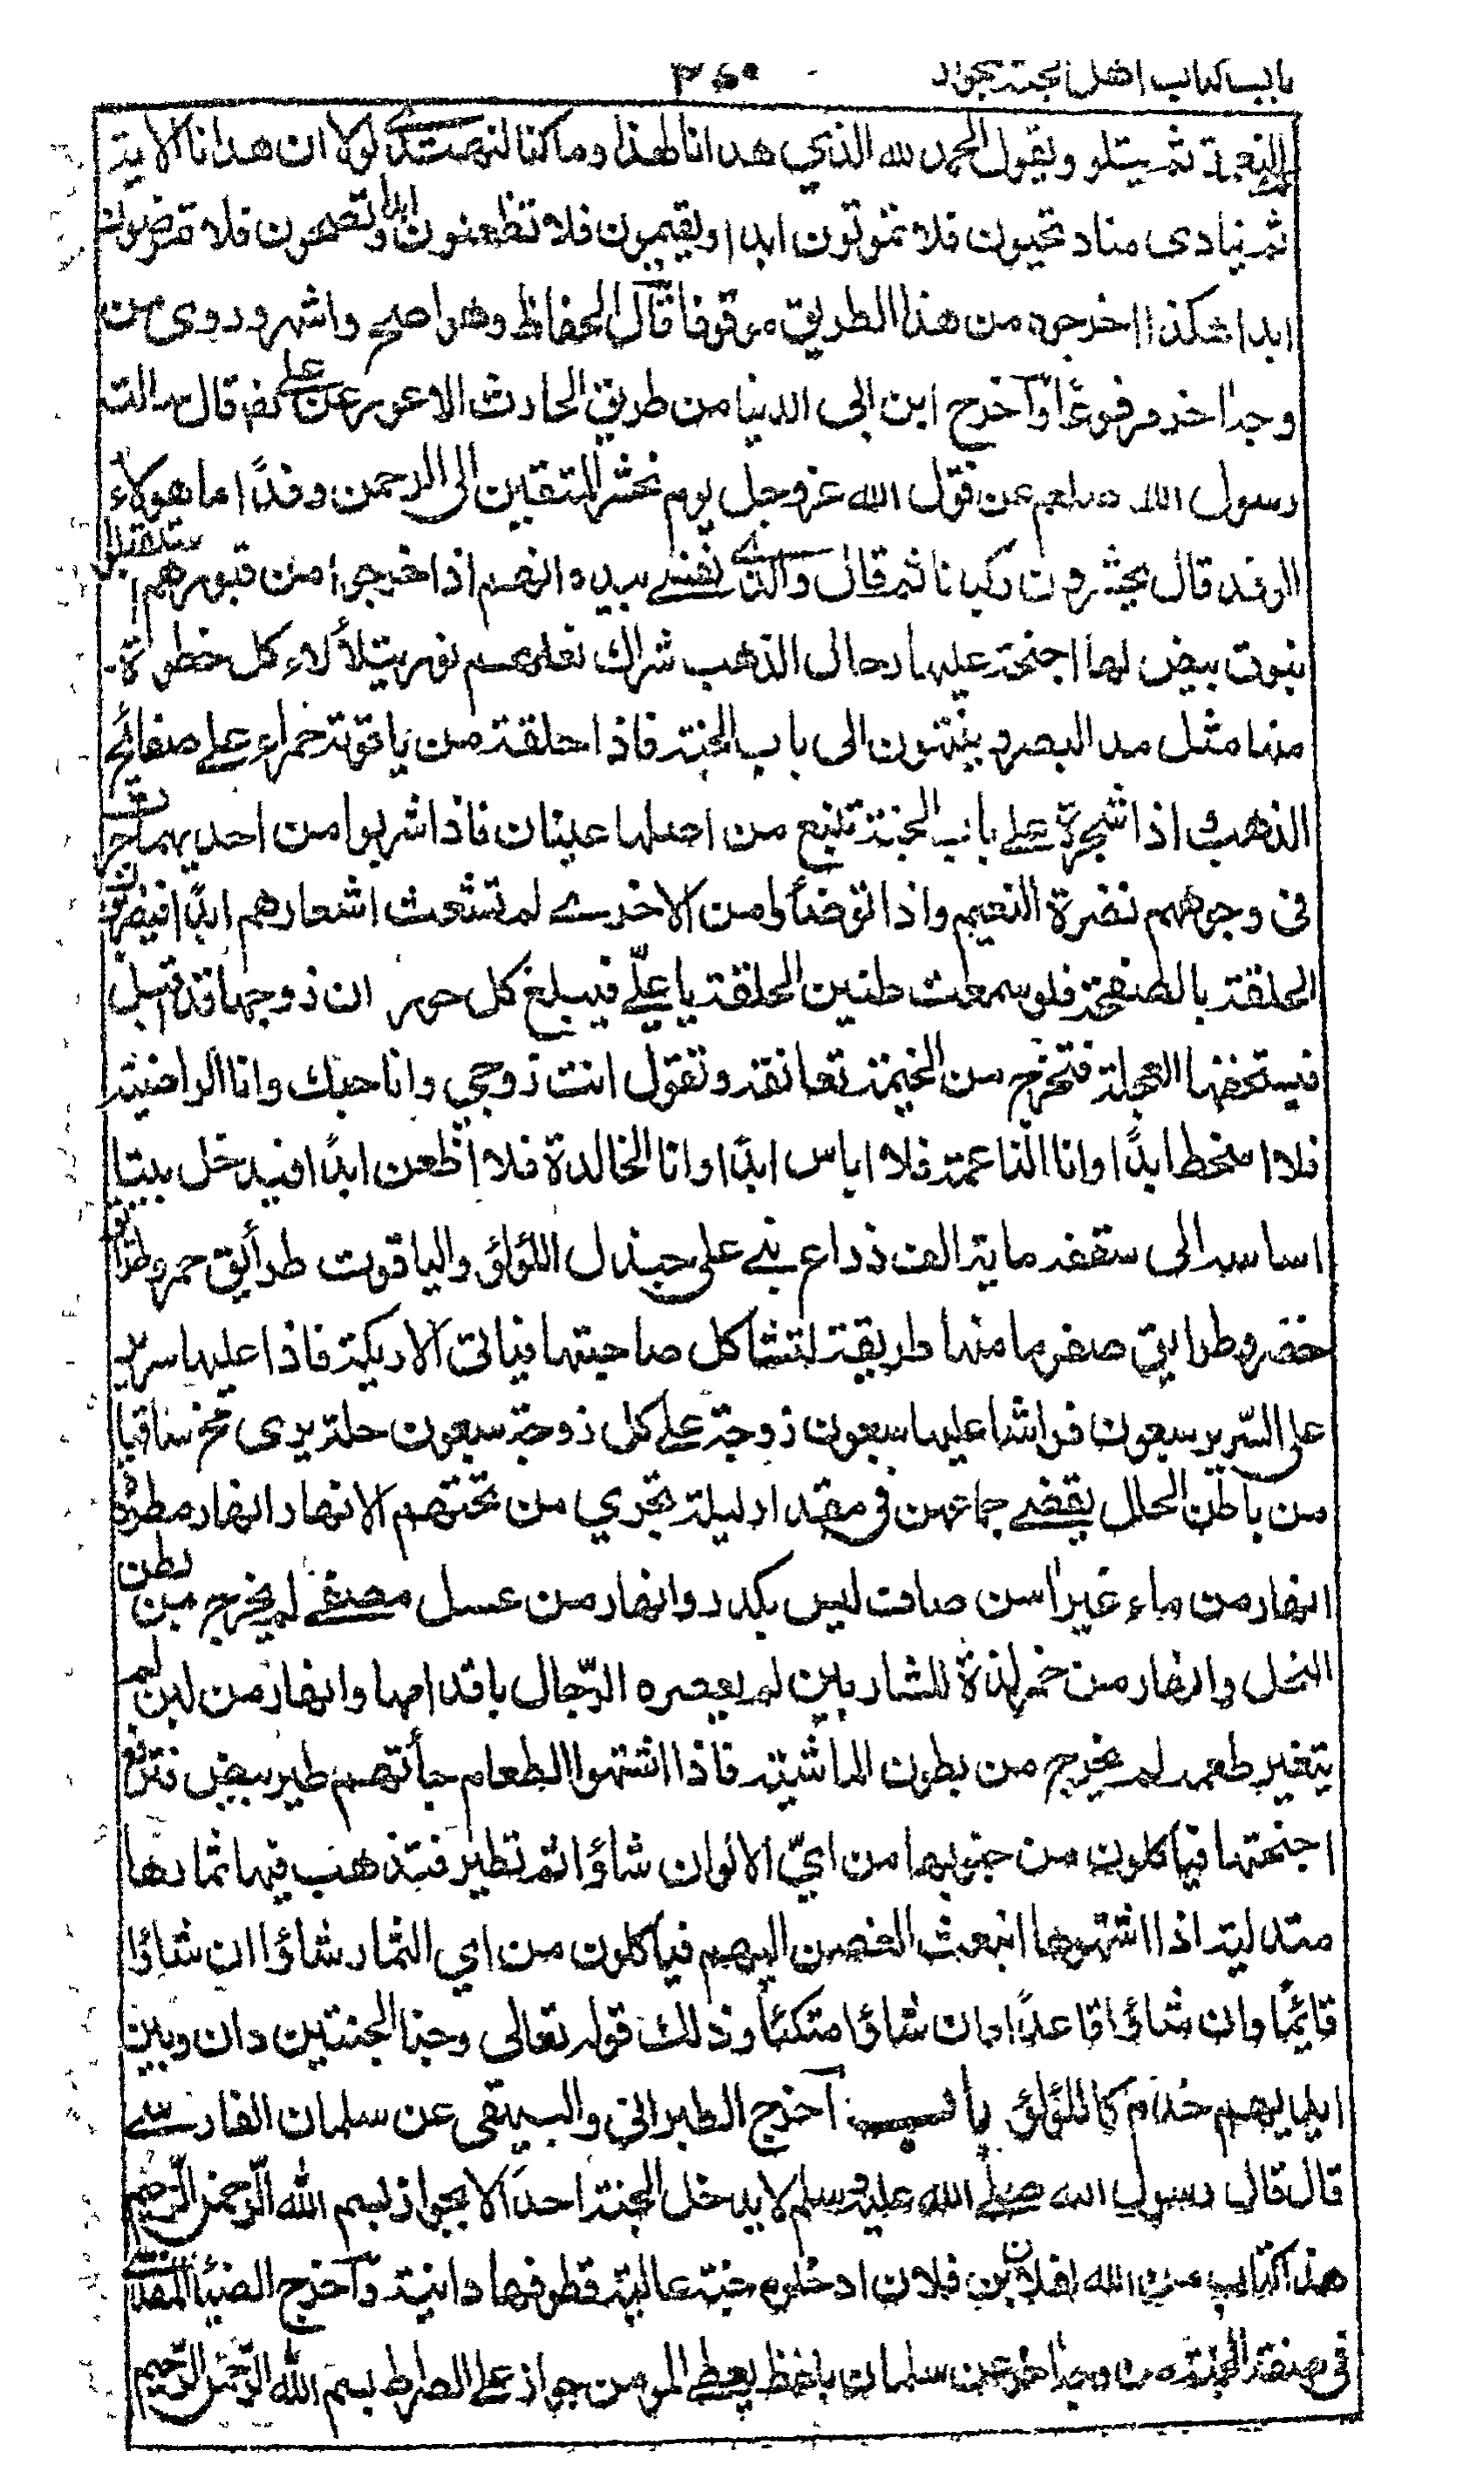 باب كتاب اهل الجنة بجواز ٣٦٠
النعمة ثم يتلو ويقول الحمد لله الذي هدانا لهذا وما كنا لنهتدي لولا ان هدانا الاية
ثم ينادي مناد تحيون فلا تموتون ابدا وتقيمون فلا تظعنون ابدا وتصحون فلا تمرضون
ابدا هكذا اخرجه من هذا الطريق موقوفا قال الحفاظ وهو اصح واشهر وروى من
وجه اخر مرفوعًا وآخرج ابن ابى الدنيا من طريق الحارث الاعور عن علي رضه قال سالت
رسول الله صلعم عن قول الله عز وجل يوم نحشر المتقين الى الرحمن وفدًا ما هولاء
الوفد قال يحشرون ركبانا ثم قال والذي نفسي بيده انهم اذا خرجوا من قبورهم استقبلوا
بنوق بيض لها اجنحة عليها رحال الذهب شراك نعلهم نور يتلألاء كل خطوة
منها مثل مد البصر وينتهون الى باب الجنة فاذا حلقة من ياقوتة حمراء على صفائح
الذهب واذا شجرة على باب الجنة تنبع من اصلها عينان فاذا شربوا من احديهما جرت
في وجوههم نضرة النعيم واذا توضأوا من الاخرى لم تشعث اشعارهم ابدًا فيضربون
الحلقة بالصفحة فلو سمعت طنين الحلقة يا علي فيبلغ كل حور ان زوجها قد اقبل
فيستخفها العجلة فتخرج من الخيمة تعانقه وتقول انت زوجي وانا حبك وانا الراضية
فلا اسخط ابدًا وانا الناعمة فلا اباس ابدًا وانا الخالدة فلا اظعن ابدًا فيدخل بيتا
اساسه الى سقفه ماية الف ذراع بني على جندل اللؤلؤ والياقوت طرائق حمر وطرائق
خضر وطرايق صفر ما منها طريقة تشاكل صاحبتها فياتي الاريكة فاذا عليها سرير
على السّرير سبعون فراشا عليها سبعون زوجة على كل زوجة سبعون حلة يرى مخ ساقيها
من باطن الحلل يقضي جماعهن في مقدار ليلة تجري من تحتهم الانهار انهار مطردة
انهار من ماء غير اسن صاف ليس بكدر وانهار من عسل مصفى لم يخرج من بطن
النحل وانهار من خمر لذة للشاربين لم يعصره الرّجال باقدامها وانهار من لبن لم
يتغير طعمه لم يخرج من بطون الماشية فاذا اشتهوا الطعام جأتهم طير بيض فترفع
اجنحتها فياكلون من جنوبها من ايّ الالوان شاؤا ثم تطير فتذهب فيها ثمارها
متدلية اذا اشتهوها انبعث الغصن اليهم فياكلون من اي الثمار شاؤا ان شاؤا
قائمًا وان شاؤا قاعدًا وان شاؤا متكئًا وذلك قوله تعالى وجنا الجنتين دان وبين
ايديهم خدام كاللؤلؤ باب آخرج الطبراني والبيهقي عن سلمان الفارسي
قال قال رسول الله صلى الله عليه وسلم لا يدخل الجنة احد الا بجواز بسم الله الرّحمن الرّحيم
هذا كتاب من الله لفلان بن فلان ادخلوه جنة عالية قطوفها دانية وآخرج الضيأ المقدسي
في صفة الجنة من وجه اخر عن سلمان بلفظ يعطى المومن جواز على الصراط بسم الله الرّحمن الرّحيم